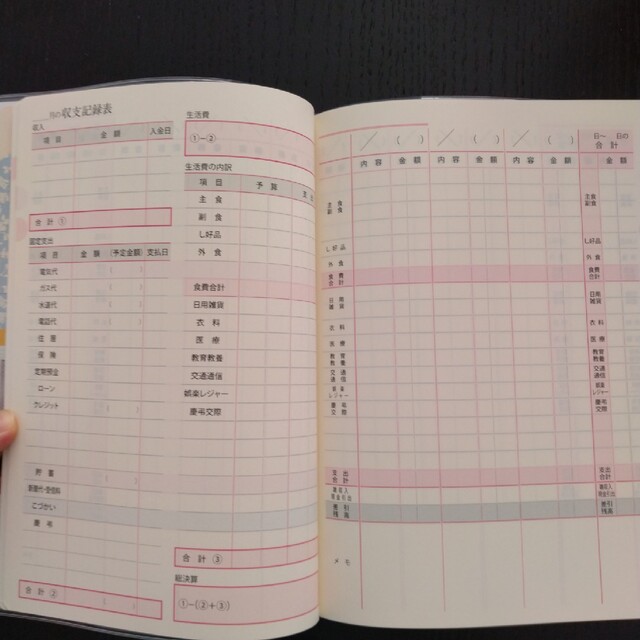 月の収支記録表
収入
項　目　金　額　入金日
合 計 ①
固定支出
項　目　金　額　(予定金額)　支払日
電気代
ガス代
水道代
電話代
住　居
保　険
定期預金
ローン
クレジット
貯　蓄
新聞代・受信料
こづかい
慶　弔
合 計 ②
生活費
①−②
生活費の内訳
項　目　予　算
主　食
副　食
し好品
外　食
食費合計
日用雑貨
衣　料
医　療
教育教養
交通通信
娯楽レジャー
慶弔交際
合 計 ③
総決算
①−(②+③)
／　(　)　／　(　)　／　(　)　日〜　日の合 計
内 容　金 額　内 容　金 額　内 容　金 額　金 額
主食
副食
し好品
外 食
食 費
合 計
日用
雑貨
衣 料
医 療
教育
教養
交 通
通 信
娯 楽
レジャー
慶 弔
交 際
支 出
合 計
差 引
残 高
メ モ
主食
副食
し好品
外 食
食費
合計
日用
雑貨
衣 料
医 療
教育
教養
交通
通信
娯 楽
レジャー
慶弔
交際
支出
合計
差引
残高